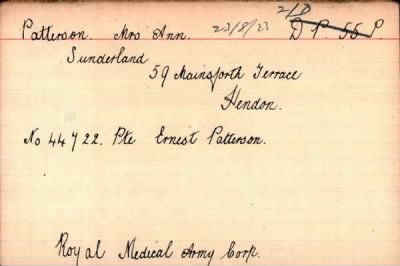 Patterson. Mrs Ann. 23/8/23 2/D D P. 55 P.
Sunderland
59 Mainsforth Terrace
Hendon.
No 44722. Pte Ernest Patterson.
Royal Medical Army Corp.